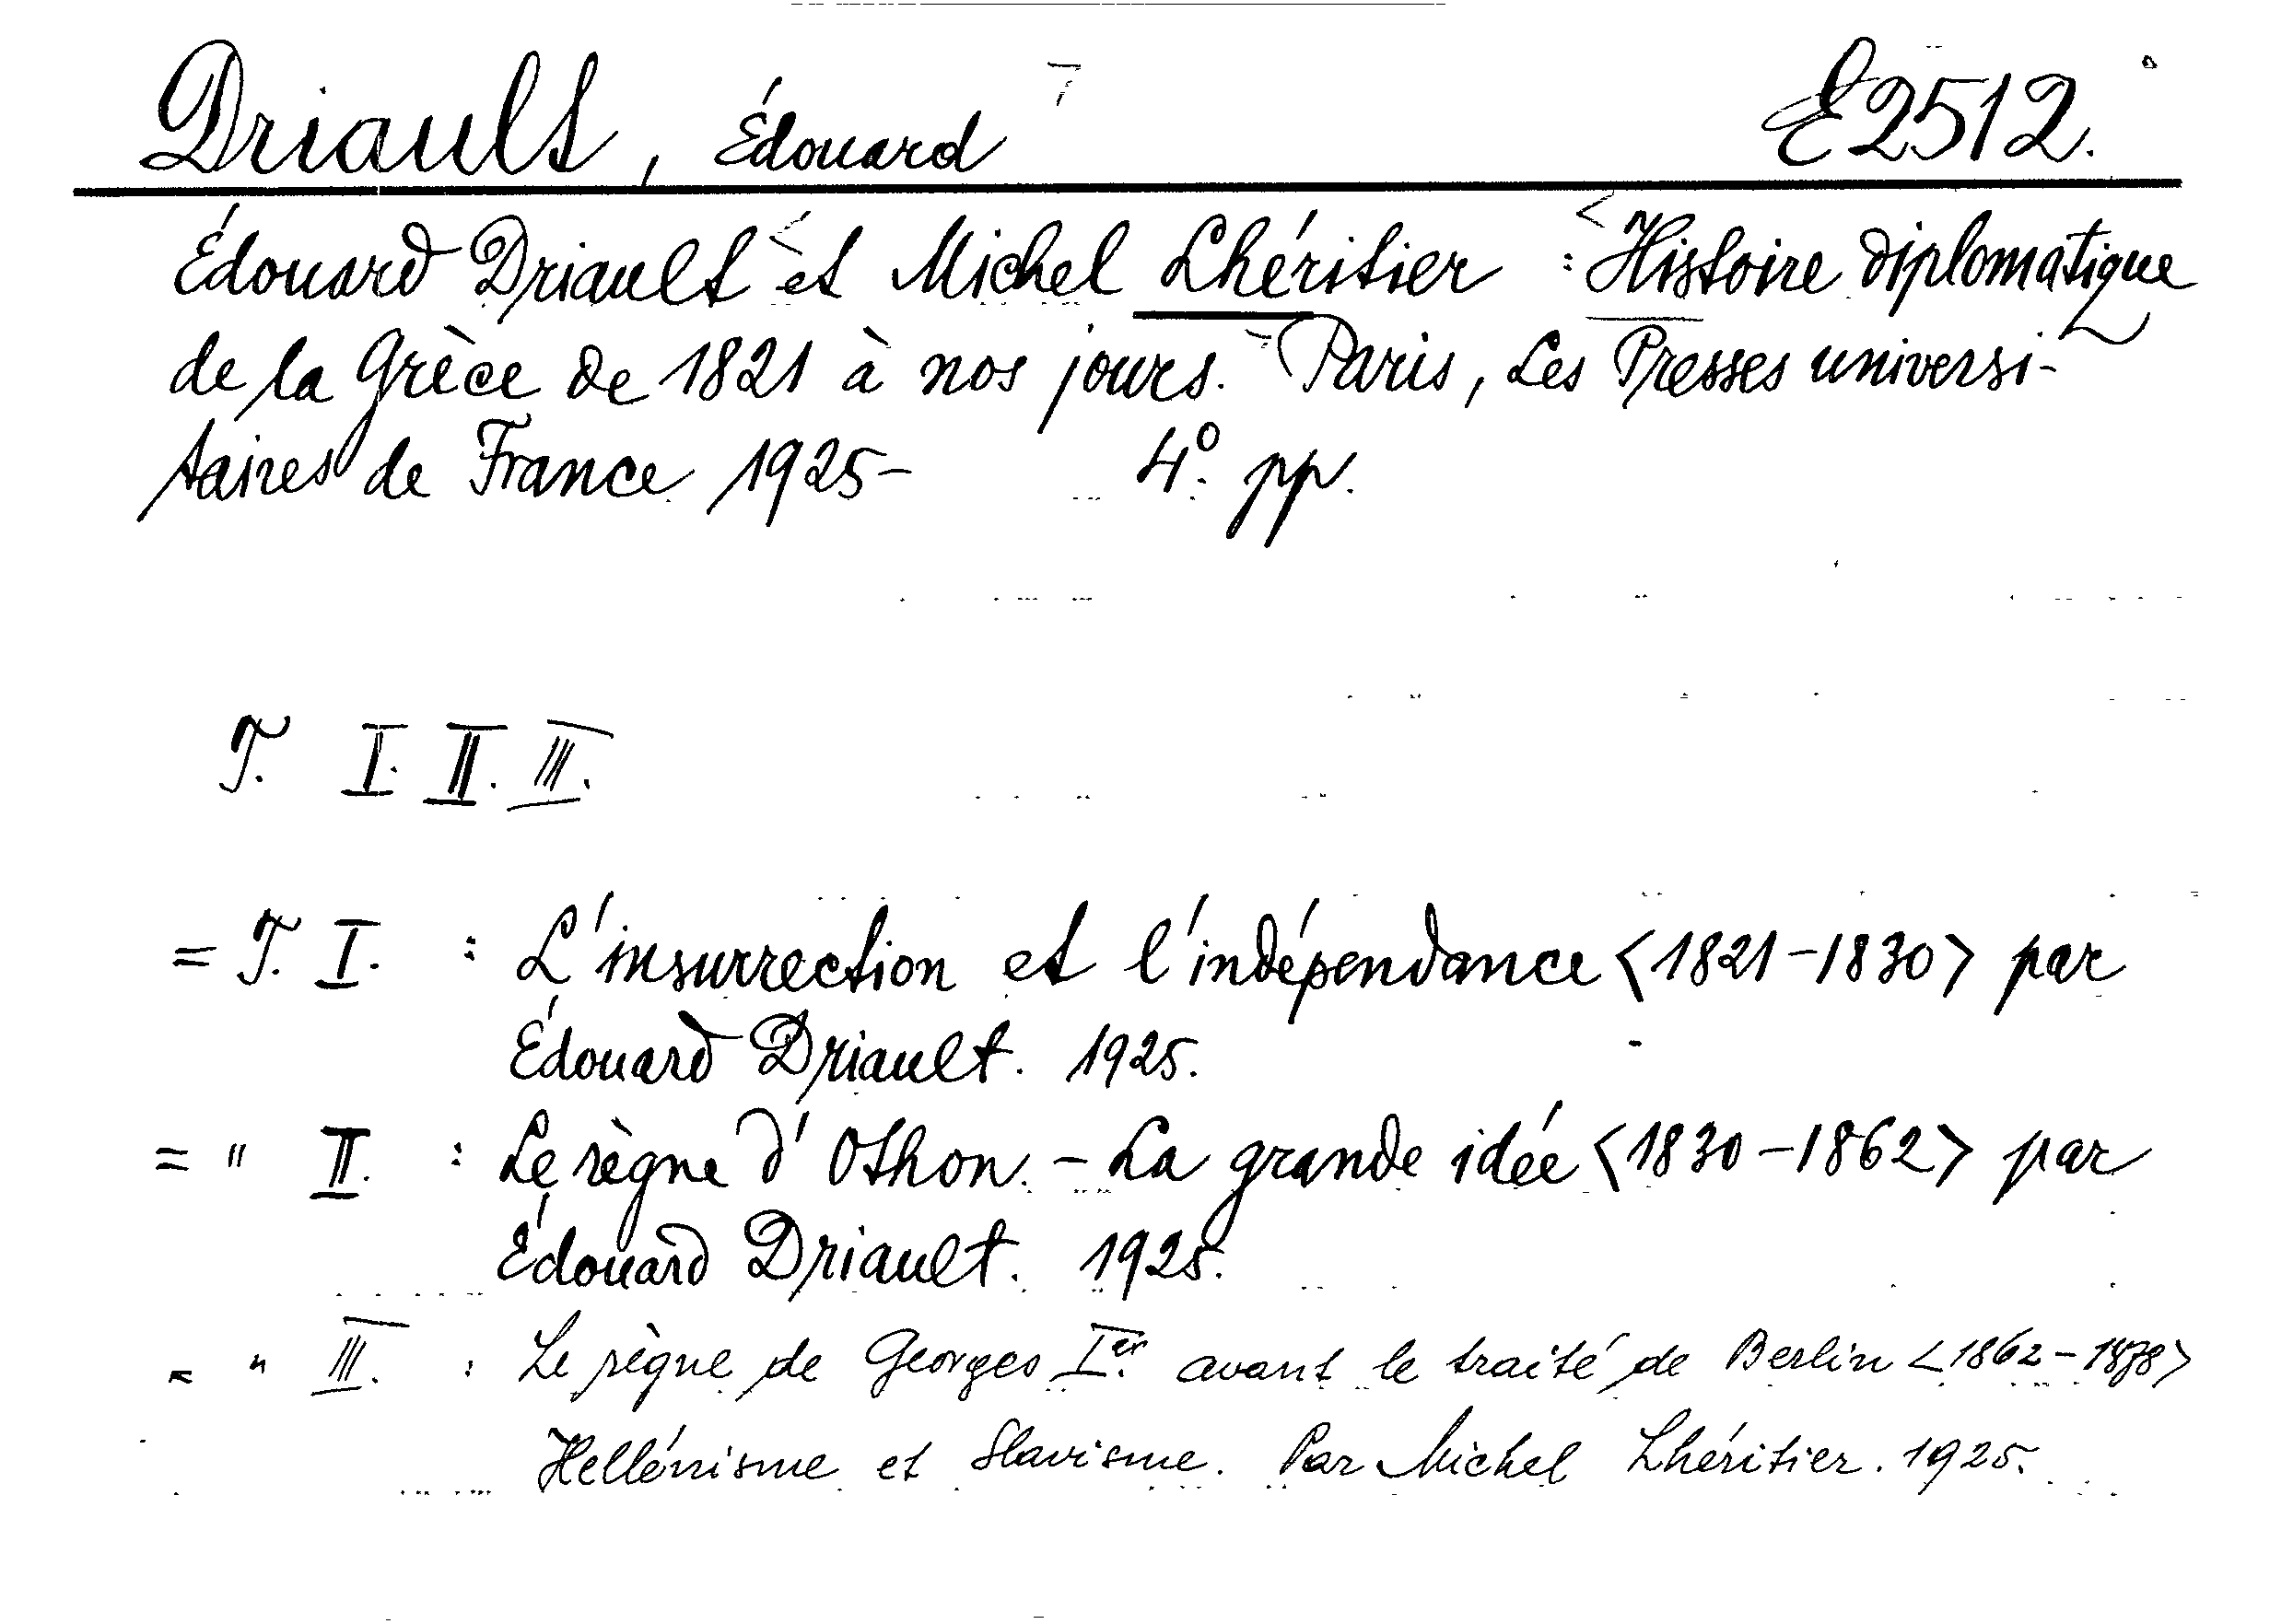 Driault, Édouard E2512.
Édouard Driault et Michel Lhéritier : Histoire diplomatique
de la Grèce de 1821 à nos jours. Paris, Les Presses universi-
taires de France 1925- 4° pp.
T. I. II. III.
= T. I. : L'insurrection et l'indépendance <1821-1830> par
Édouard Driault. 1925.
= " II. : Le règne d'Othon. - La grande idée <1830-1862> par
Édouard Driault. 1925.
= " III. : Le règne de Georges Ier avant le traité de Berlin <1862-1878>
Hellénisme et Slavisme. Par Michel Lhéritier. 1925.